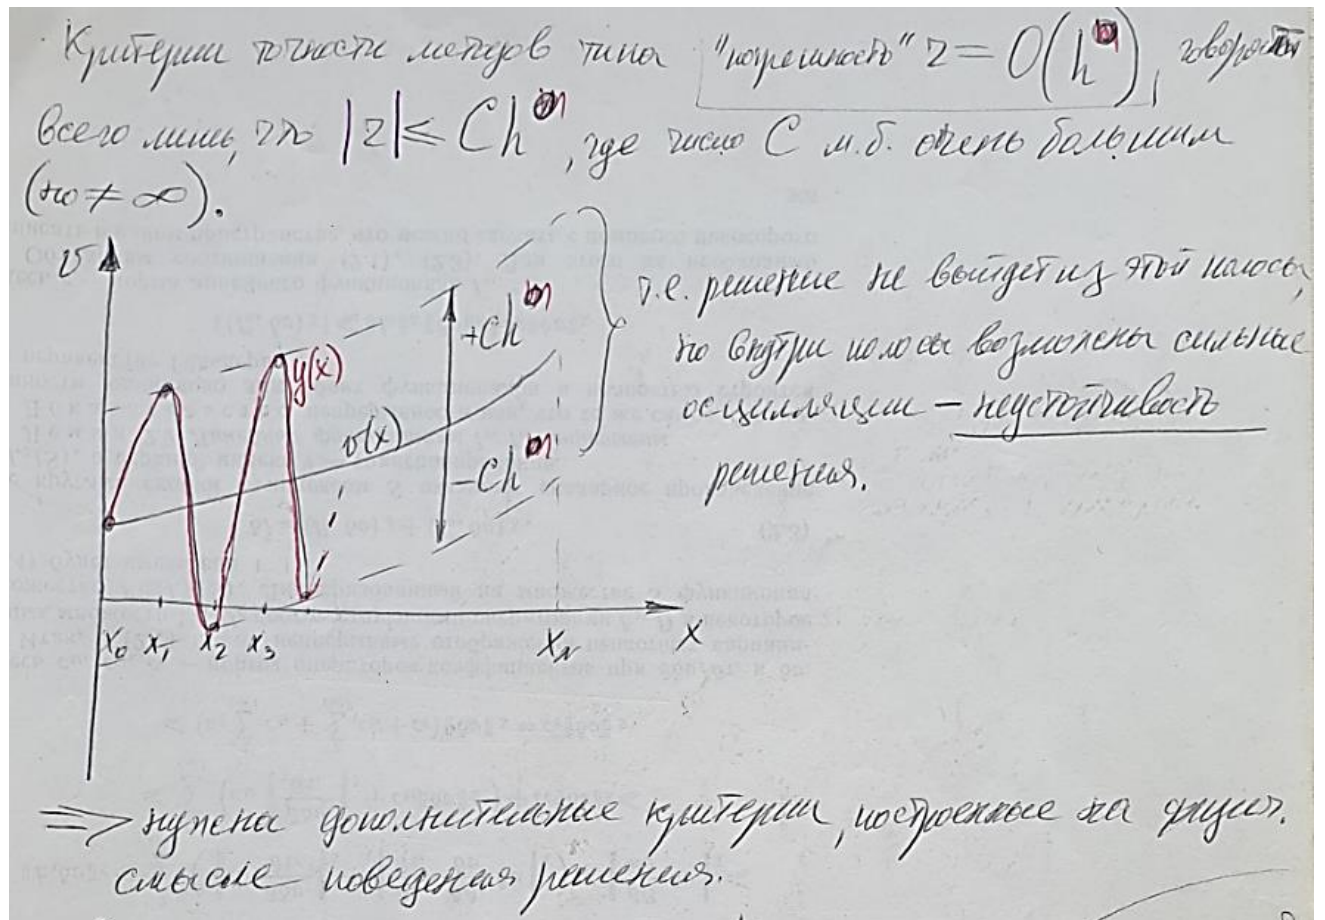 Критерии точности методов типа "погрешность" z = O(hᵐ), говорят
всего лишь, что |z| ≤ Chᵐ, где число C м.б. очень большим
(но ≠ ∞).
υ
+Chᵐ
т.е. решение не выйдет из этой полосы,
но внутри полосы возможны сильные
y(x)
осцилляции – неустойчивость
υ(x)
-Chᵐ
решения.
x₀ x₁ x₂ x₃ x
⇒ нужны дополнительные критерии, построенные на физич.
смысле поведения решения.